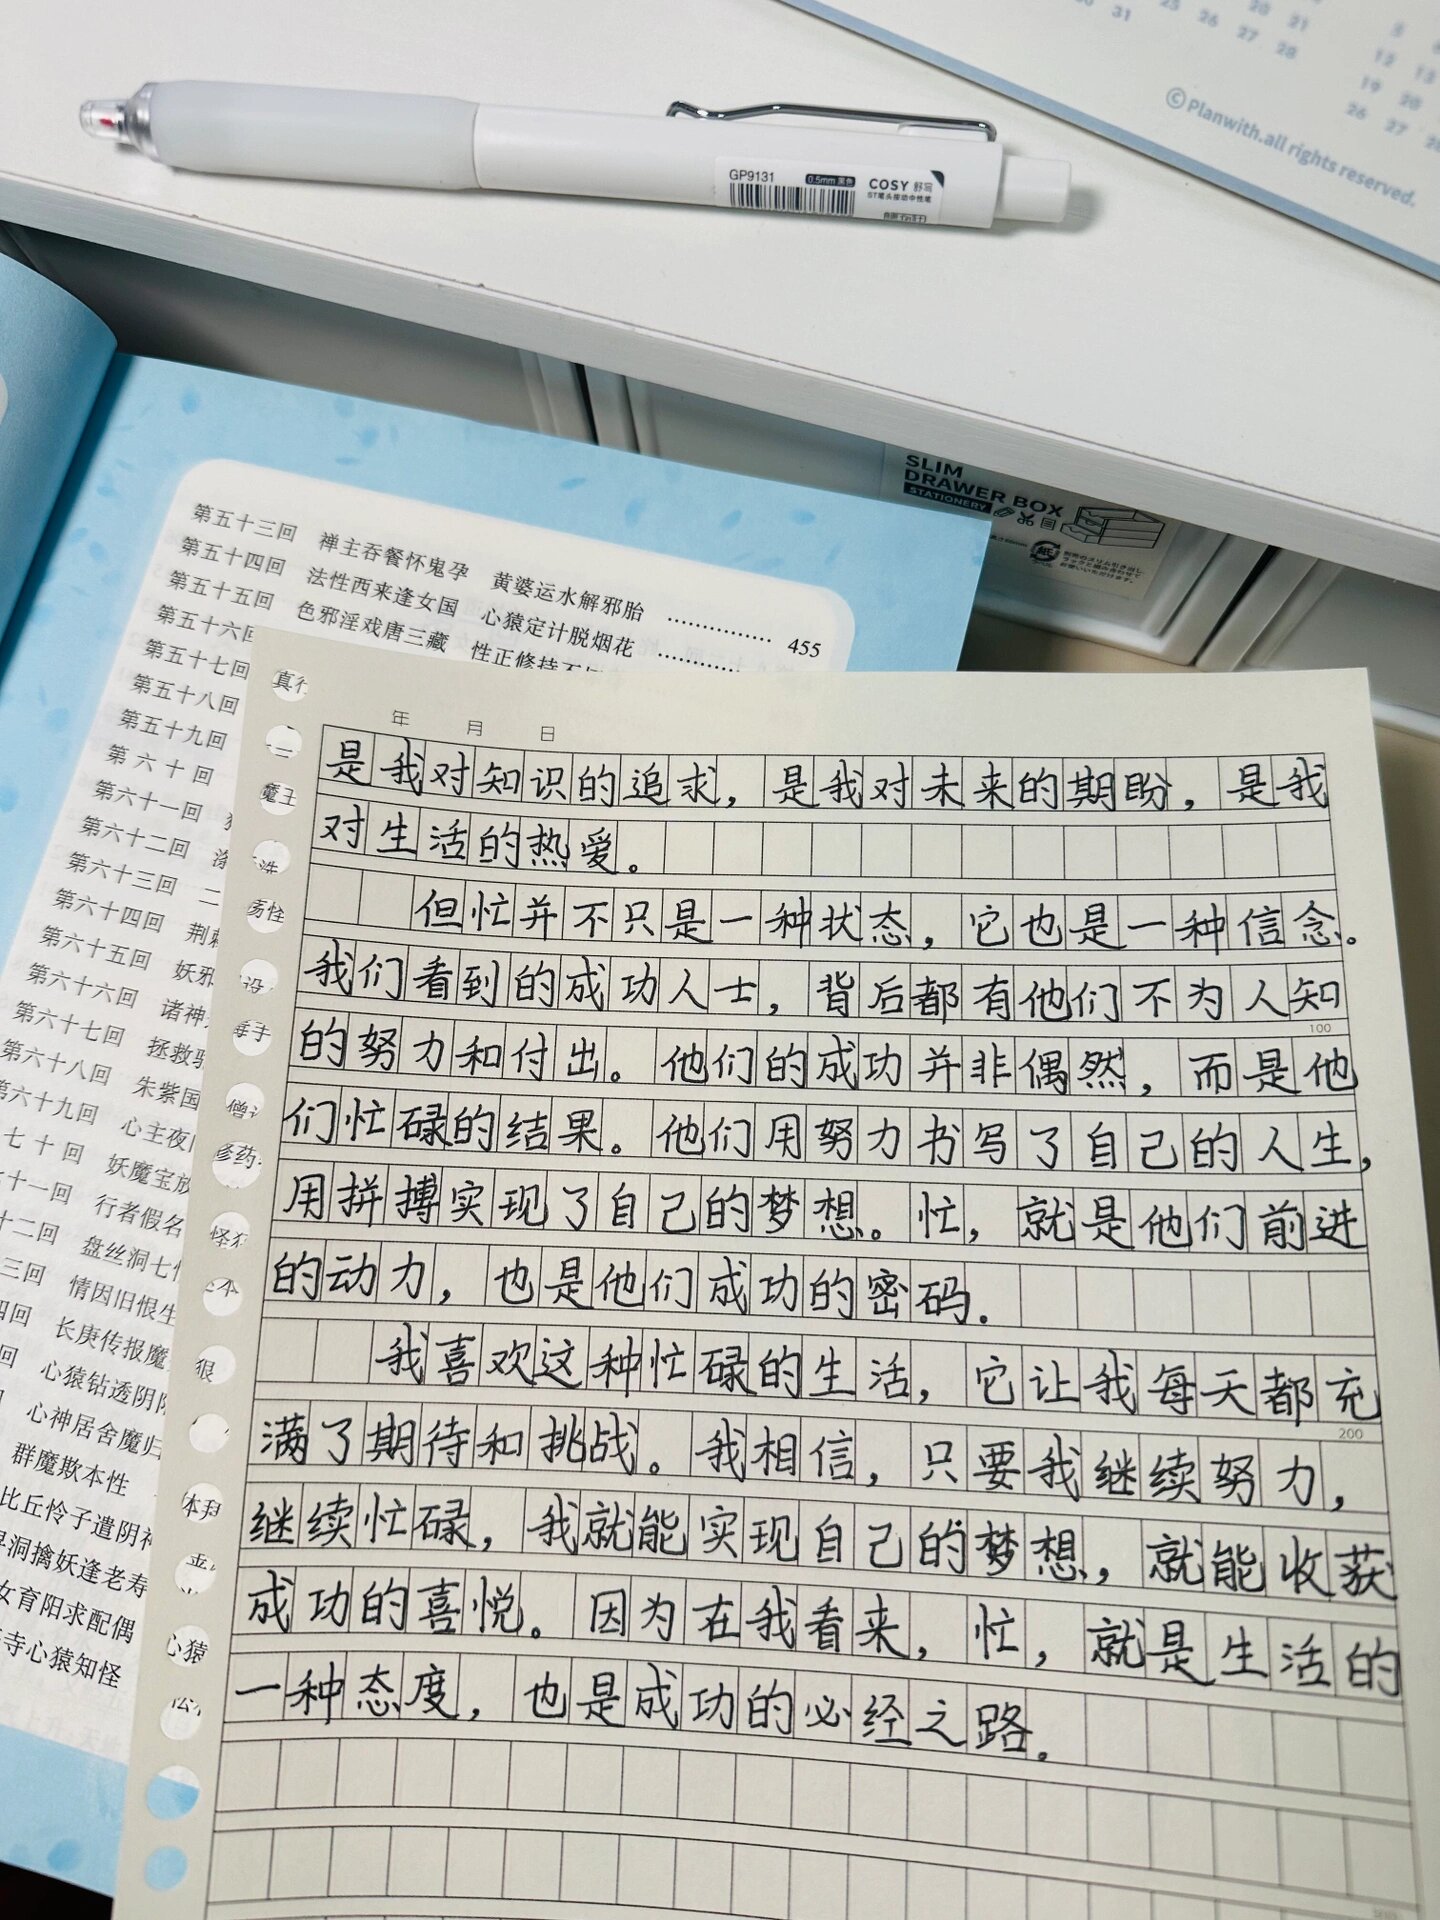 30 31
25 26 27 28
20 21
5
12 13
19 20
26 27 28
©Planwith.all rights reserved.
GP9131 0.5mm 黑色 COSY 舒写
ST笔头按动中性笔
SLIM
DRAWER BOX
STATIONERY
第五十三回 禅主吞餐怀鬼孕 黄婆运水解邪胎 …………… 455
第五十四回 法性西来逢女国 心猿定计脱烟花 …………
第五十五回 色邪淫戏唐三藏 性正修持不
第五十六回
第五十七回
第五十八回
第五十九回
第六十回
第六十一回
第六十二回
第六十三回 二
第六十四回 荆棘
第六十五回 妖邪
第六十六回 诸神
第六十七回 拯救
第六十八回 朱紫国
第六十九回 心主夜
七十回 妖魔宝放
十一回 行者假名
十二回 盘丝洞七
三回 情因旧恨生
四回 长庚传报魔
回 心猿钻透阴阳
心神居舍魔归
群魔欺本性
比丘怜子遣阴神
洞擒妖逢老寿
女育阳求配偶
寺心猿知怪
年 月 日
是我对知识的追求，是我对未来的期盼，是我
对生活的热爱。
但忙并不只是一种状态，它也是一种信念。
我们看到的成功人士，背后都有他们不为人知
100
的努力和付出。他们的成功并非偶然，而是他
们忙碌的结果。他们用努力书写了自己的人生，
用拼搏实现了自己的梦想。忙，就是他们前进
的动力，也是他们成功的密码。
我喜欢这种忙碌的生活，它让我每天都充
200
满了期待和挑战。我相信，只要我继续努力，
继续忙碌，我就能实现自己的梦想，就能收获
成功的喜悦。因为在我看来，忙，就是生活的
一种态度，也是成功的必经之路。